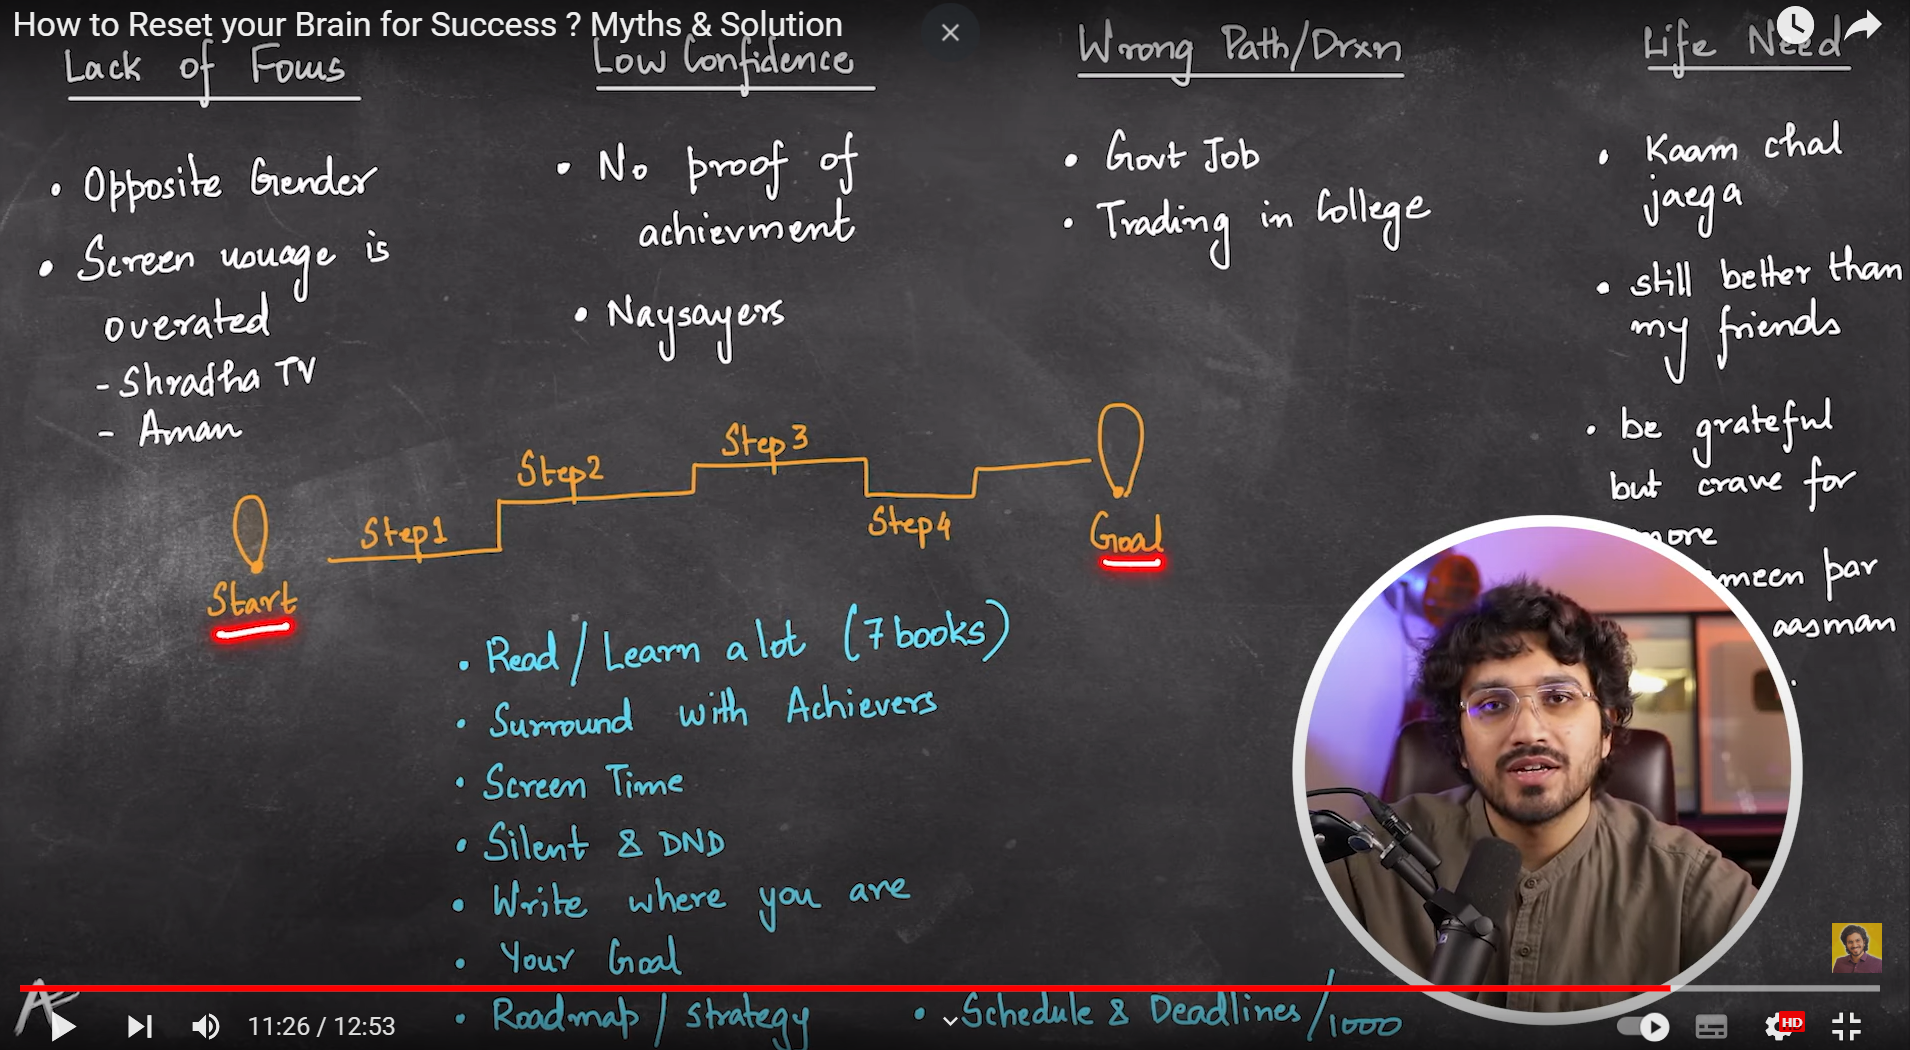 How to Reset your Brain for Success ? Myths & Solution
Lack of Focus
• Opposite Gender
• Screen usuage is
overated
- Shradha TV
- Aman
Low Confidence
• No proof of
achievment
• Naysayers
Wrong Path/Drxn
• Govt Job
• Trading in College
Life Need
• Kaam chal
jaega
• still better than
my friends
• be grateful
but crave for
more
meen par
aasman
Step1
Step2
Step3
Step4
Start
Goal
• Read / Learn a lot (7 books)
• Surround with Achievers
• Screen Time
• Silent & DND
• Write where you are
• Your Goal
• Roadmap / strategy
• Schedule & Deadlines/1000
11:26 / 12:53
HD